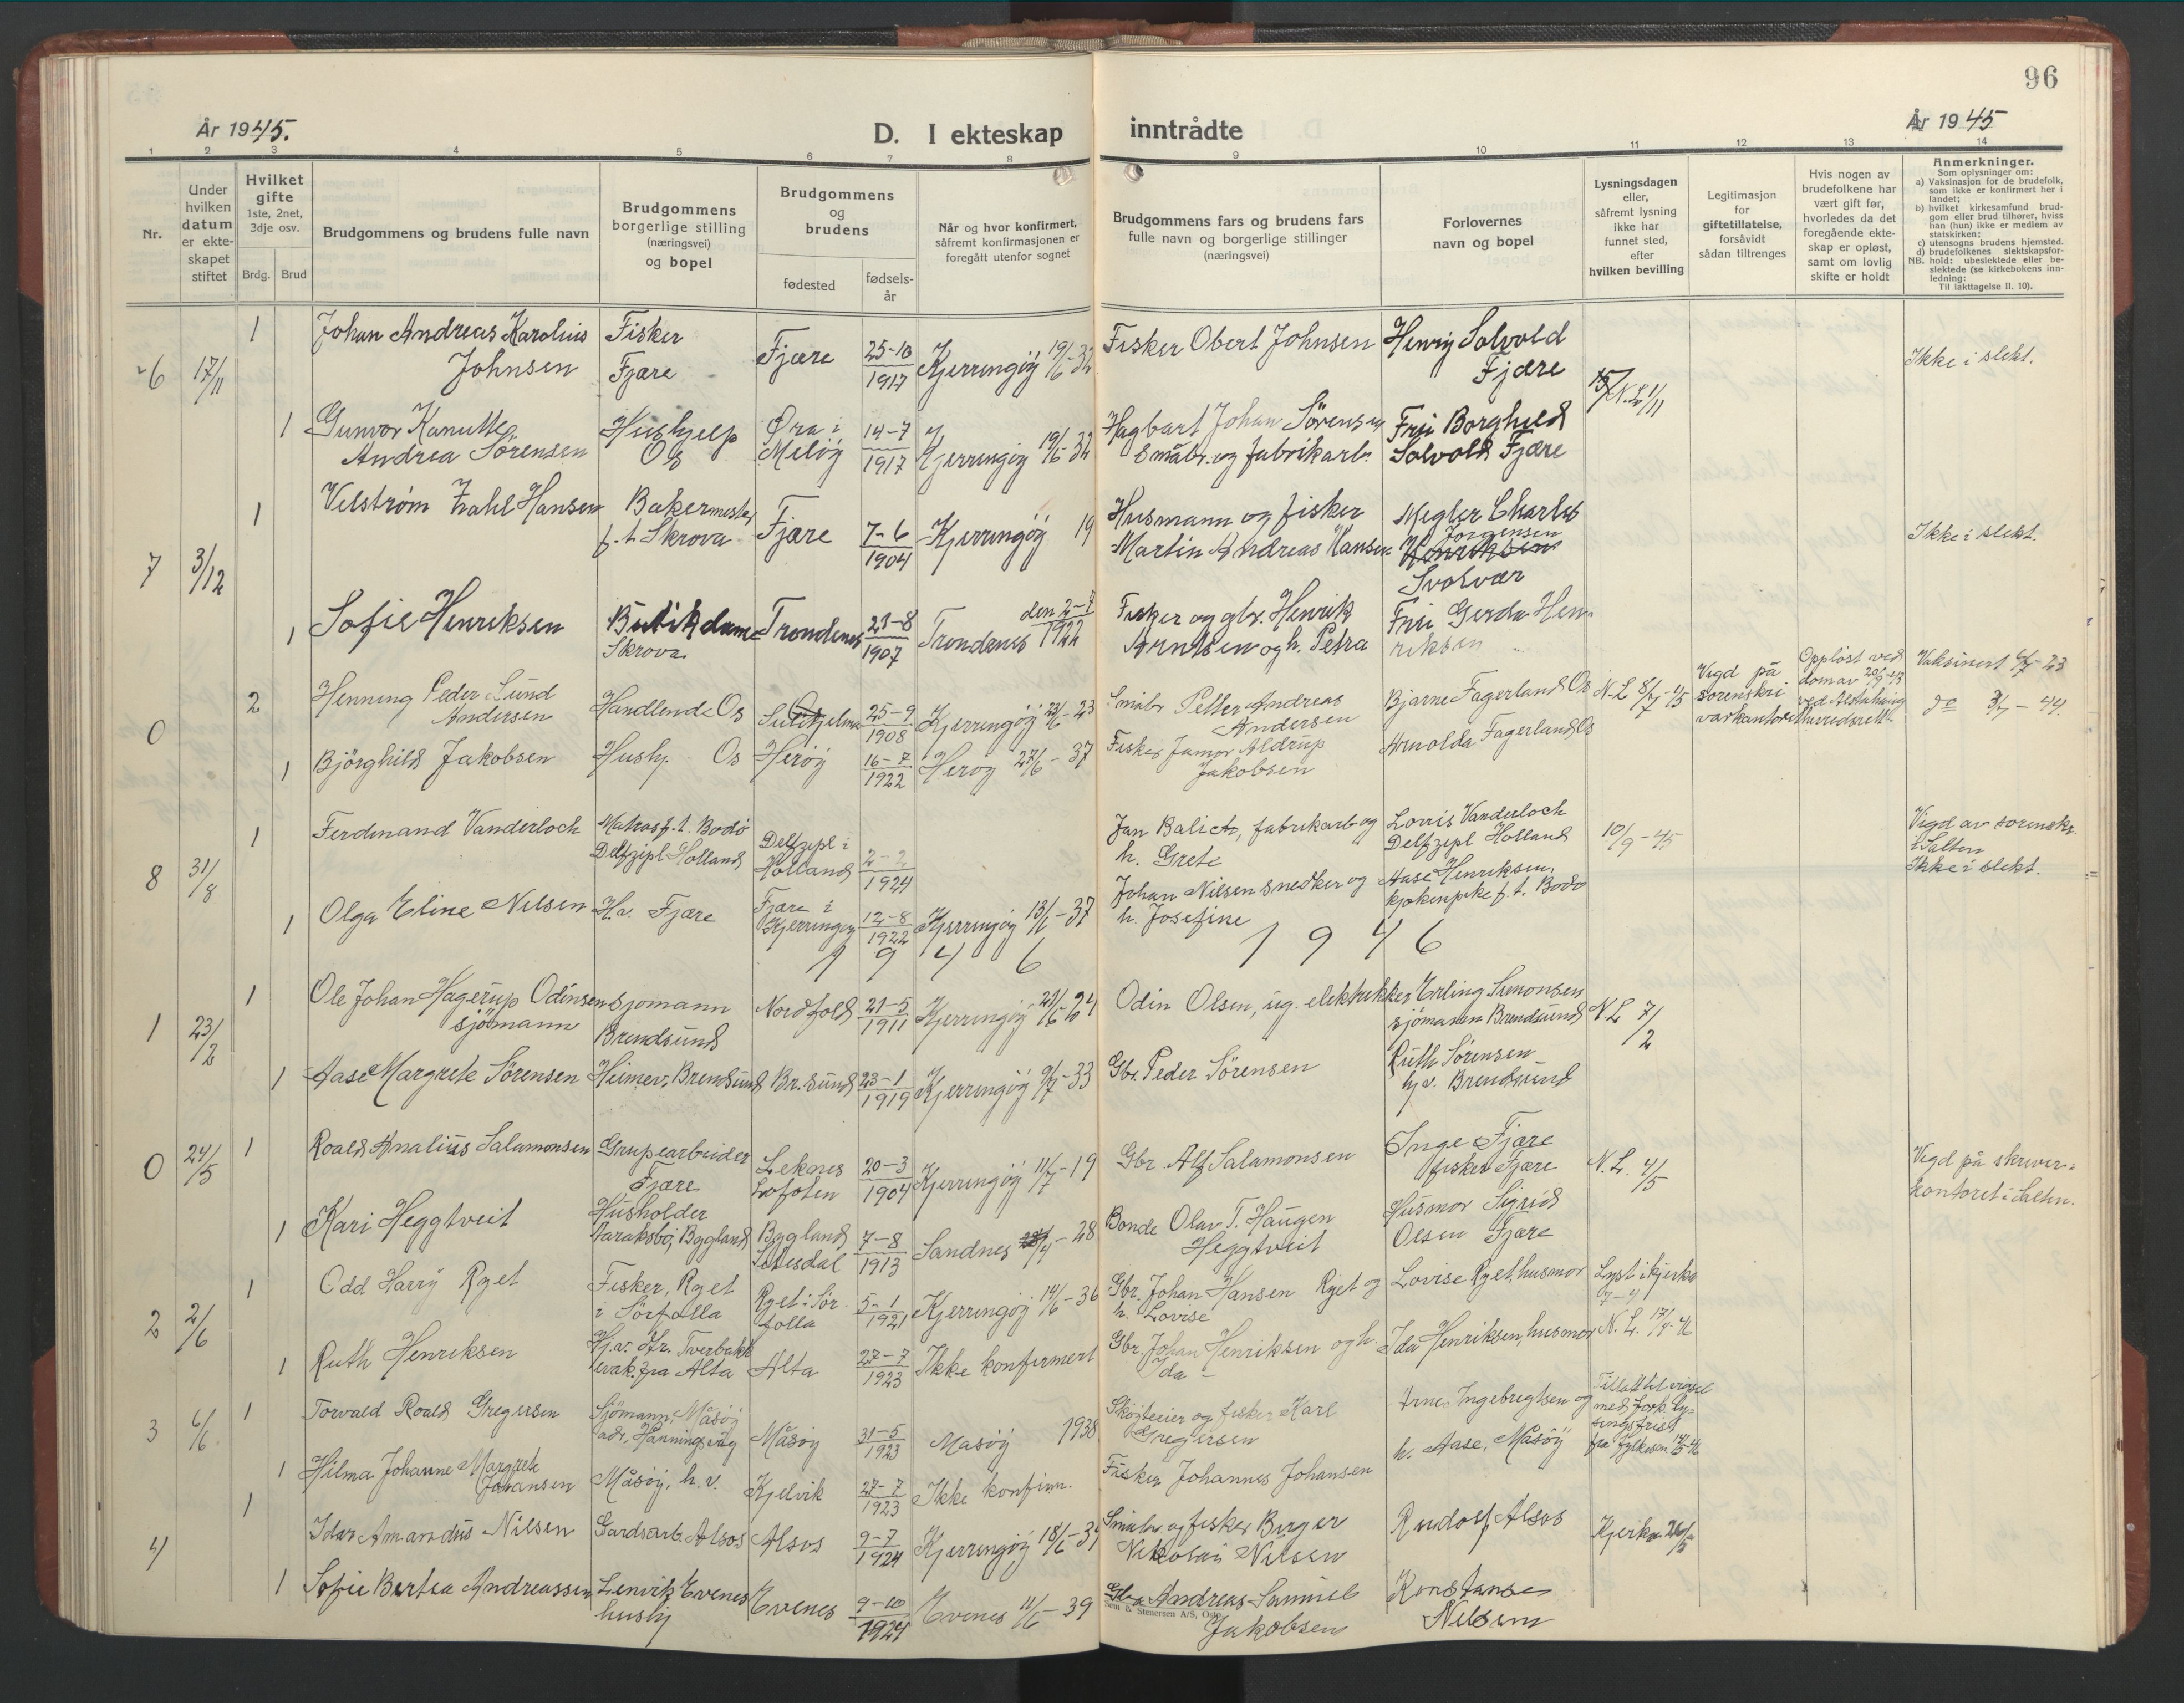 96
År 1945.
D. I ekteskap inntrådte
År 1945
1 2 3 4 5 6 7 8 9 10 11 12 13 14
Nr.
Under hvilken datum er ekteskapet stiftet
Hvilket gifte
1ste, 2net, 3dje osv.
Brdg. Brud
Brudgommens og brudens fulle navn
Brudgommens borgerlige stilling (næringsvei) og bopel
Brudgommens og brudens
fødested
fødselsår
Når og hvor konfirmert, såfremt konfirmasjonen er foregått utenfor sognet
Brudgommens fars og brudens fars fulle navn og borgerlige stillinger (næringsvei)
Forlovernes navn og bopel
Lysningsdagen eller, såfremt lysning ikke har funnet sted, efter hvilken bevilling
Legitimasjon for giftetillatelse, forsåvidt sådan tiltrenges
Hvis nogen av brudefolkene har vært gift før, hvorledes da det foregående ekteskap er opløst, samt om lovlig skifte er holdt
Anmerkninger.
Som oplysninger om:
a) Vaksinasjon for de brudefolk, som ikke er konfirmert her i landet;
b) hvilket kirkesamfund brudgom eller brud tilhører, hviss han (hun) ikke er medlem av statskirken;
c) utensogns brudens hjemsted.
d) brudefolkenes slektskapsforhold: ubeslektede eller beslektede (se kirkebokens innledning:
NB.
Til iakttagelse II. 10).
6 17/11 1 Johan Andreas Karolius Johnsen Fisker Fjære Fjære 25-10 1917 Kjerringøy 19/6-32 Fisker Obert Johnsen Henry Solvold Fjære N.L. 1/11 Ikke i slekt.
1 Gunvor Kanutte Andrea Sörensen Hushjelp Os Øra i Melöy 14-7 1917 Kjerringöy 19/6-32 Hagbart Johan Sörensen Småbr. og fabrikarb. Fru Borghild Solvold Fjære
7 3/12 1 Velström Zahl Hansen Bakermester f.t Skrova Fjære 7-6 1904 Kjerringöy 19 Husmann og fisker Martin Andreas Hansen Megler Charles Jörgensen Henriksen Svolvær Ikke i slekt.
1 Sofie Henriksen Butikdame Skrova Trondenes 21-8 1907 Trondenes den 2-7 1922 Fisker og gbr. Henrik Arntsen og h. Petra Fru Gerda Henriksen "
0 2 Henning Peder Sund Andersen Handlende Os Sulitjelma 25-9 1908 Kjerringöy -23 Småbr Petter Andreas Andersen Bjarne Fagerland Os N.L. Vigd på sorenskrivarkontoret Opplöst ved dom av ved Alstahaug herredsrett. Vaksinert -23
1 Björghild Jakobsen Hushj. Os Heröy 16-7 1922 Heröy 27/6-37 Fisker Aldrup Jakobsen Arnolda Fagerland Os do -44.
8 31/8 1 Ferdinand Vanderloch Matros f.t. Bodö Delfzipl Holland Delfzipl i Holland 2-2 1924 Jan fabrikarb og h. Grete Vanderloch Delfzipl Holland 10/9-45 Vigd av sorenskr. i Salten Ikke i slekt.
1 Olga Eline Nilsen Hv. Fjære Fjære i Kjerringöy 12-8 1922 Kjerringöy 13/6-37 Johan Nilsen snedker og h. Josefine Aase Henriksen, kjökenpike f.t. Bodö
1 9 4 6 1 9 4 6
1 23/2 1 Ole Johan Hagerup Odinsen sjömann Sjomann Brendsund Nordfold 21-5 1911 Kjerringöy Odin Olsen, ug. elektriker Erling Simonsen sjömann Brendsund N.L 7/2
1 Aase Margrete Sörensen Brendsund Br.sund 23-1 1919 Kjerringöy 9/7-33 Gbr. Peder Sörensen Ruth Sörensen hj.v. Brendsund
0 24/5 1 Roald Analius Salamonsen Grupearbeider Fjære Leknes Lofoten 20-3 1904 Kjerringöy 11/7-19 Gbr. Alf Salamonsen Inge Fjære fisker Fjære N.L. 4/5 Vigd på skriverkontoret i Salten.
1 Kari Heggtveit Husholder Aaraksbö, Bygland Bygland Setesdal 7-8 1913 Sandnes -28 Bonde Olav T. Haugen Heggtveit Husmor Sigrid Olsen Fjære
2 2/6 1 Odd Harry Röet Fisker, Röet i Sörfolla Röet i Sörfolla 5-1 1921 Kjerringöy 14/6-36 Gbr. Johan Hansen Röet og h. Lovise Lovise Röet, husmor Lyst i kjerka
1 Ruth Henriksen Hj.v. dtr. Tverbakk evak. fra Alta Alta 27-7 1923 Ikke konfirmert Gbr. Johan Henriksen og h. Ida Ida Henriksen, husmor N.L. 17/4-46
3 6/6 1 Torvald Roald Gregersen Sjömann, Måsöy adr. Honningsvåg Måsöy 31-5 1923 Masöy 1938 Sköyteeier og fisker Karl Gregersen Arne Ingebregtsen og h. Aase, Måsöy Tillatt til vigsel med fork. lysingsfrist fra fylkesm.
1 Hilma Johanne Margrete Johansen Måsöy, h.v. Kjelvik 27-7 1923 Ikke konfirm. Fisker Johannes Johansen
4 1 Idar Amandus Nilsen Gardsarb. Alsos Alsos 9-7 1924 Kjerringöy 18/6-39 Småbr. og fisker Birger Nikolai Nilsen Rudolf Alsos Kjerka 26/5
1 Sofie Bertea Andreassen Lenvik Evenes hushj Evenes 9-10 1924 Evenes 11/6-39 Gbr. Andreas Samuel Jakobsen Konstanse Nilsen
Sem & Stenersen A/S, Oslo